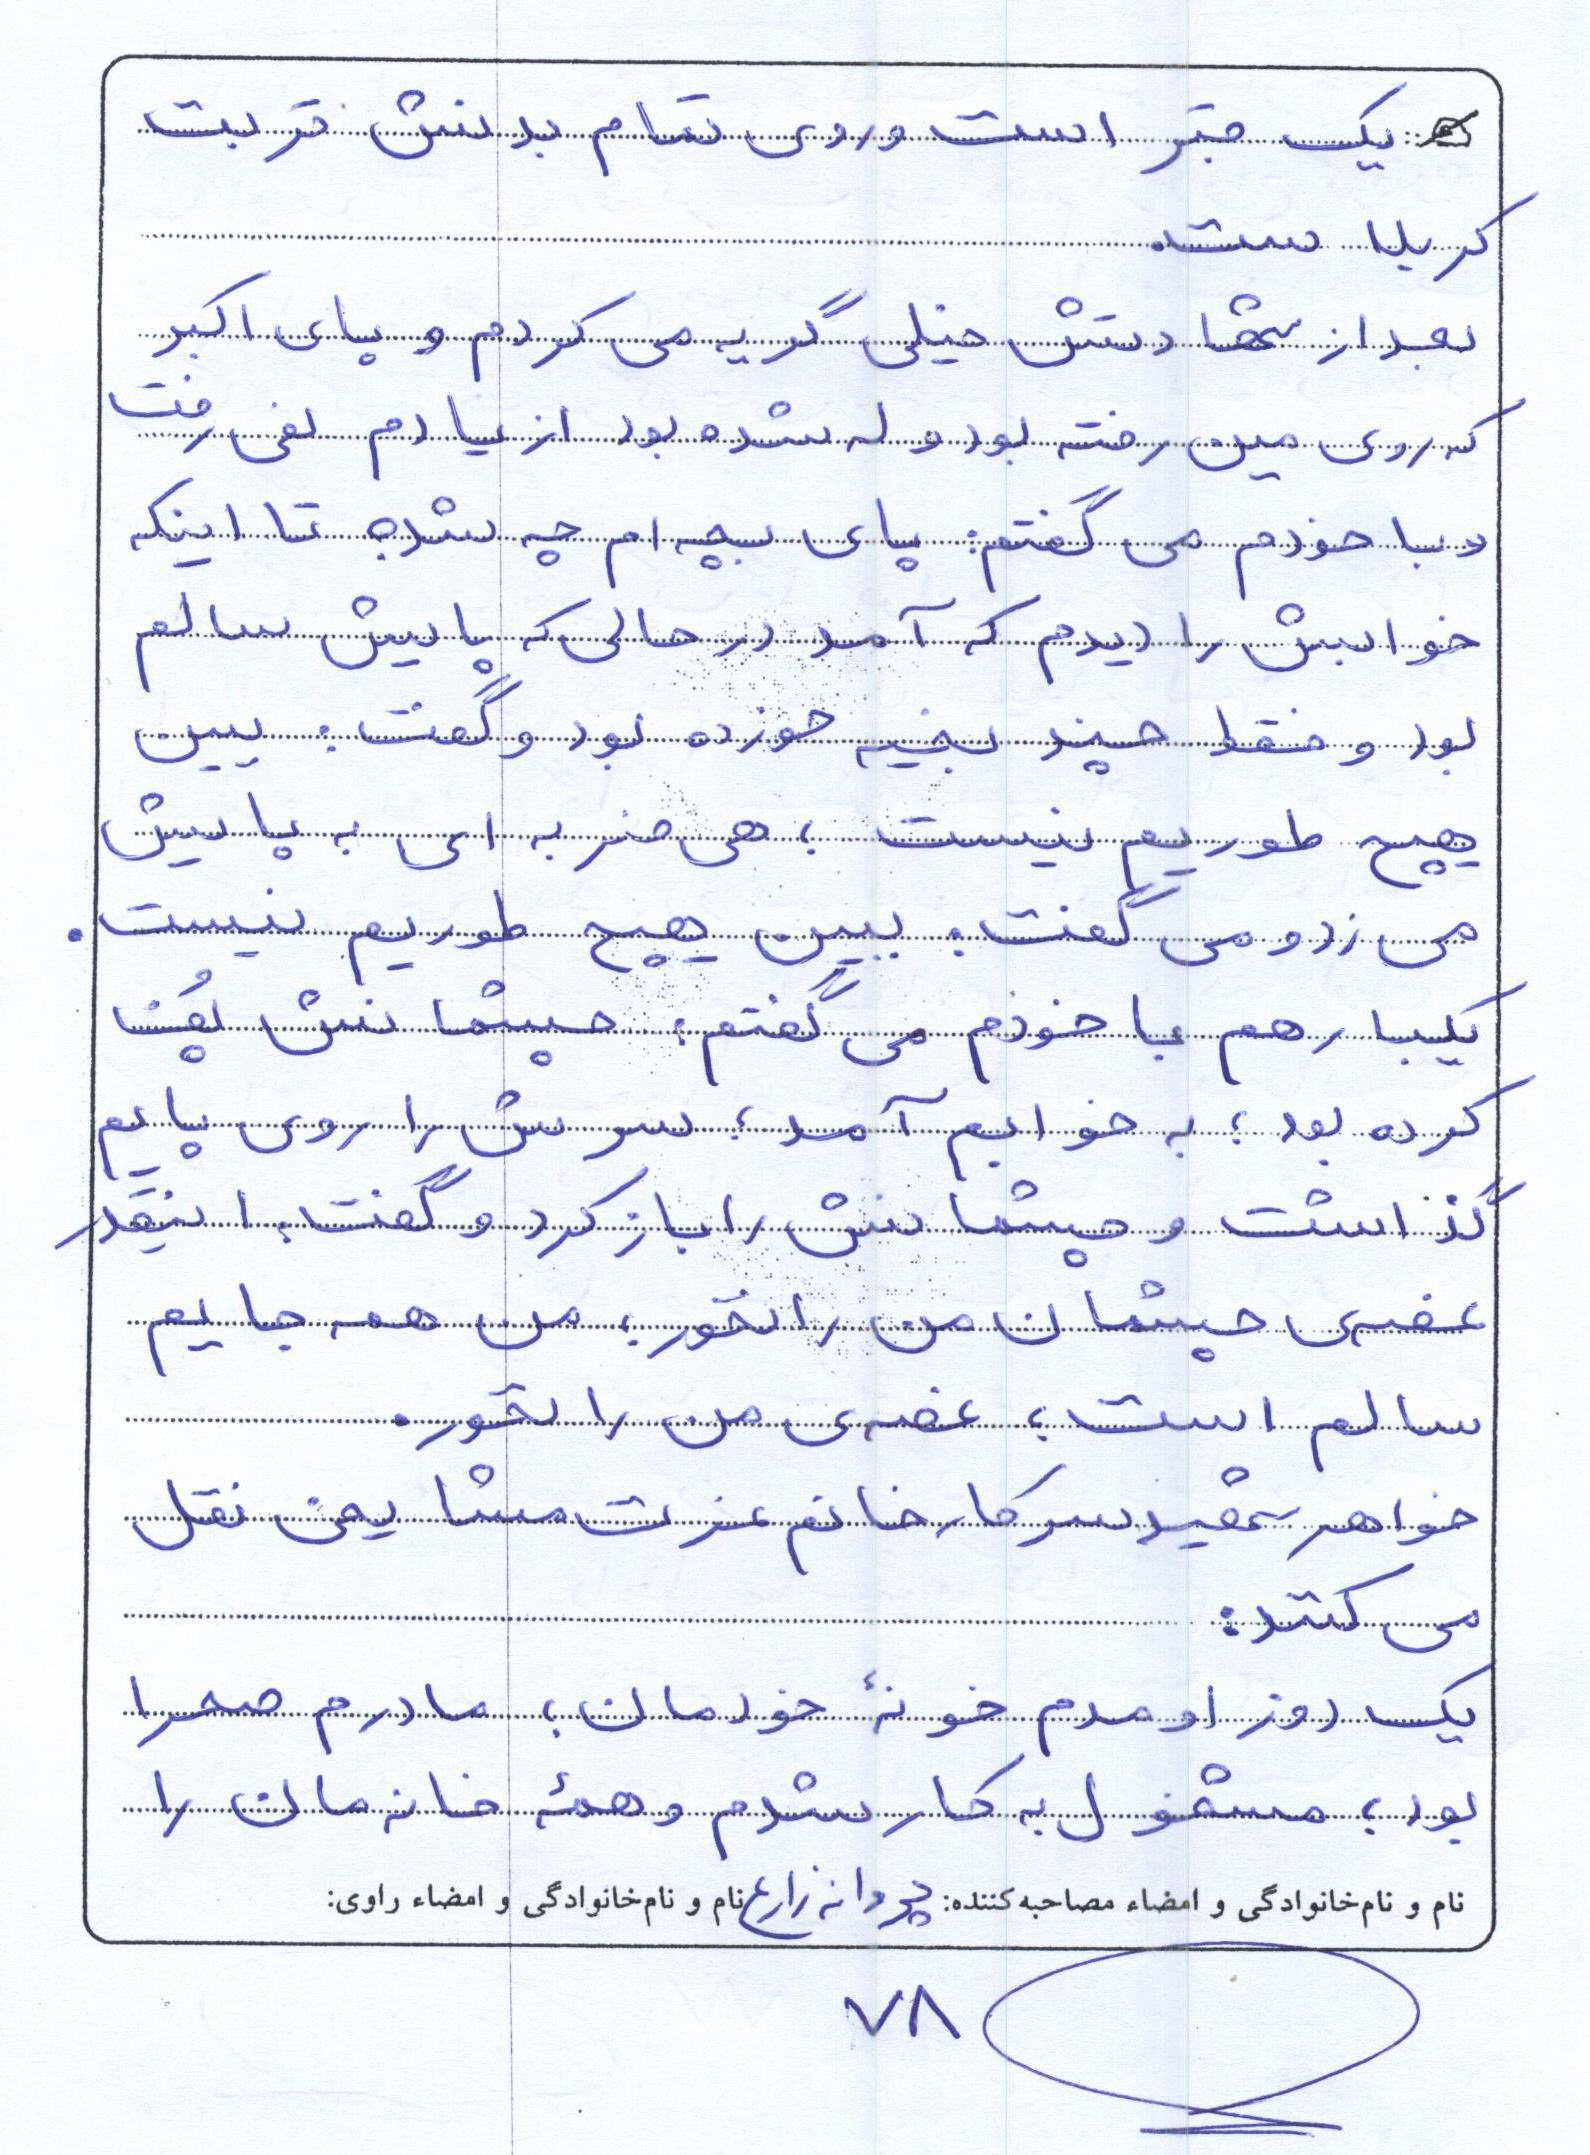 یک قبر است و روی تمام بدنش تربت
کربلا ست.
بعد از شهادتش خیلی گریه می کردم و پای اکبر
که روی مین رفته بود و له شده بود از یادم نمی رفت
و با خودم می گفتم: پای بچه ام چه شده تا اینکه
خوابش را دیدم که آمد در حالی که پایش سالم
بود و فقط چند بخیه خورده بود و گفت: ببین
هیچ طوریم نیست؛ هی ضربه ای به پایش
می زد و می گفت: ببین هیچ طوریم نیست.
یکبار هم با خودم می گفتم: چشمانش پُف
کرده بود؛ به خوابم آمد؛ سرش را روی پایم
گذاشت و چشمانش را باز کرد و گفت: اینقدر
غصه‌ی چشمان من را نخور؛ من همه جایم
سالم است؛ غصه‌ی من را نخور.
خواهر شهید سرکار خانم عزت مشایخی نقل
می کنند:
یک روز اومدم خونهٔ خودمان؛ مادرم صحرا
بود؛ مشغول به کار شدم و همهٔ خانه مان را
نام و نام‌خانوادگی و امضاء مصاحبه‌کننده: پروانه زارع نام و نام‌خانوادگی و امضاء راوی:
۷۸